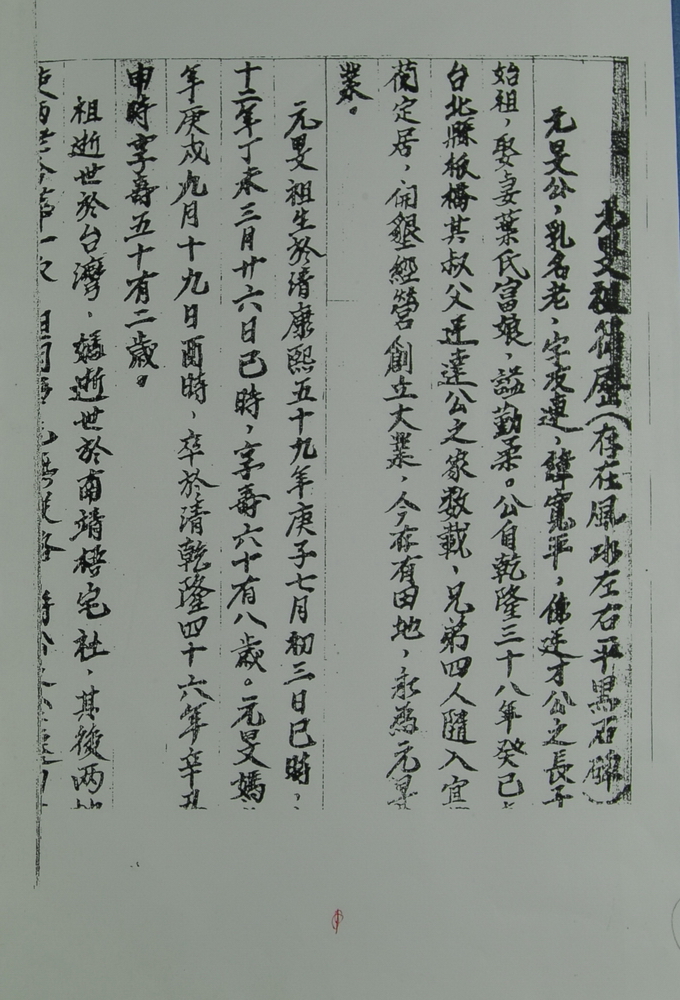 元旻祖簡歷（存在風水左右平黑石碑）
元旻公，乳名老，字友連，諱寬平，係廷才公之長子
始祖，娶妻葉氏富娘，謚勤柔。公自乾隆三十八年癸巳
台北縣板橋其叔父廷達公之家數載，兄弟四人隨入宜
蘭定居，開墾經營創立大業，今存有田地，永為元旻
業。
元旻祖生於清康熙五十九年庚子七月初三日巳時，
十二年丁未三月廿六日巳時，享壽六十有八歲。元旻媽
年庚戌九月十九日酉時，卒於清乾隆四十六年辛丑
申時享壽五十有二歲。
祖逝世於台灣，媽逝世於南靖梧宅社，其後兩地